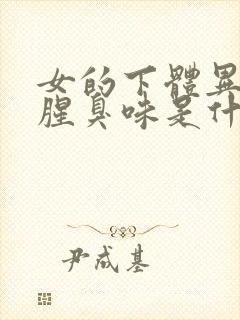 女的下體異
腥臭味是什
尹成基